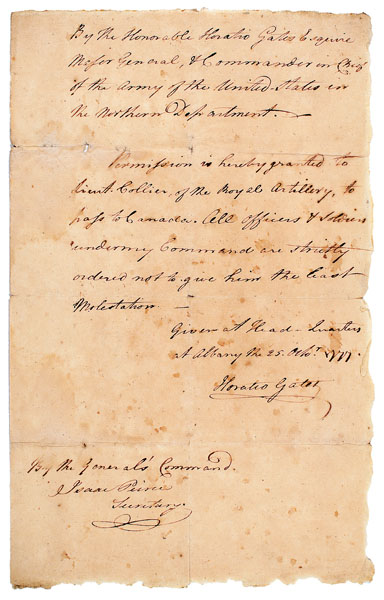 By the Honorable Horatio Gates Esquire
Major General, & Commander in Chief
of the Army of the United States in
the Northern Department.
Permission is hereby granted to
Lieut. Collier, of the Royal Artillery, to
pass to Canada. All Officers & Soldiers
under my Command are strictly
ordered not to give him the least
Molestation
Given at Head-Quarters
at Albany the 25. Octr. 1777.
Horatio Gates
By the General's Command.
Isaac Peirce
Secretary.